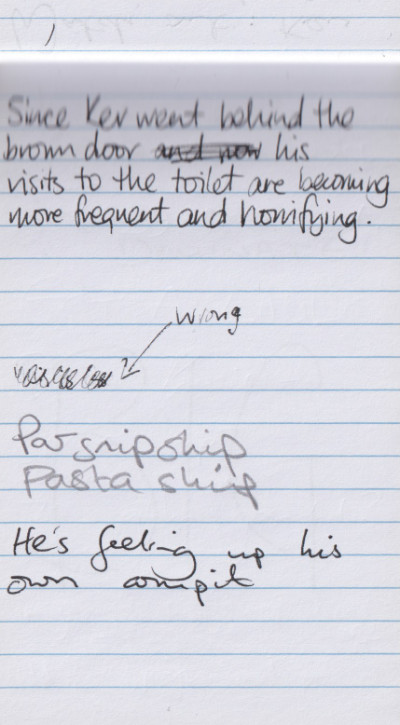 Since Kev went behind the
brown door and now his
visits to the toilet are becoming
more frequent and horrifying.
wrong
Parsnipship
Pasta ship
He's feeling up his
own armpit